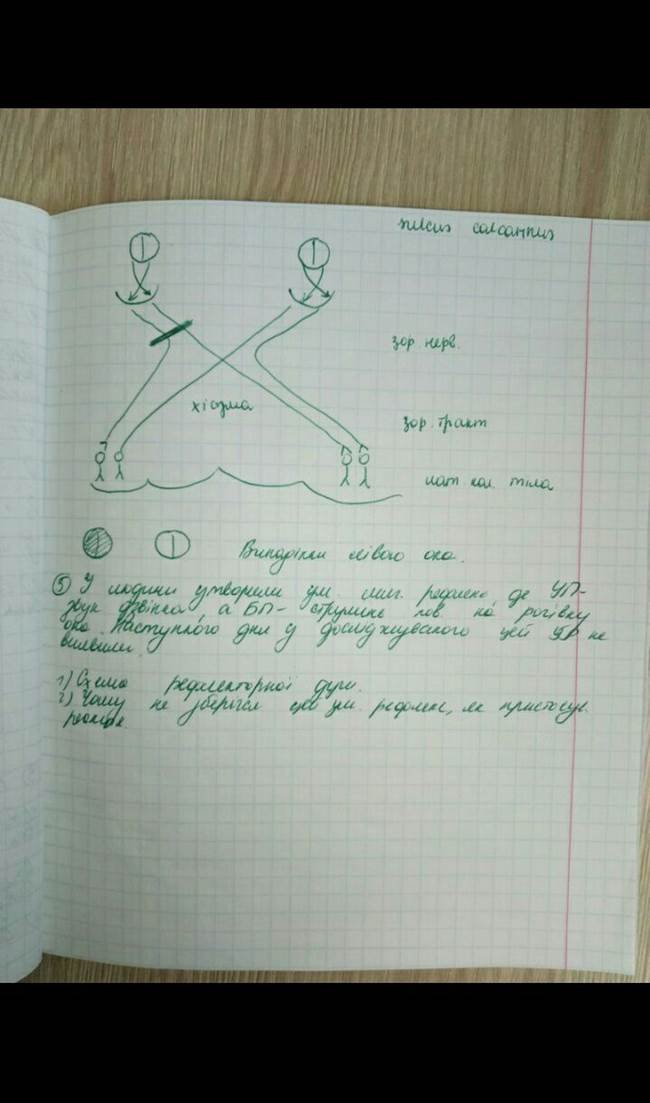 sulcus calcarinus
зор. нерв.
хіазма
зор. тракт
лат. кол. тіла
Випадіння лівого ока.
⑤ У людини утворили ум. миг. рефлекс, де УП-
звук дзвінка, а БП- струмінь пов. на рогівку
ока. Наступного дня у досліджуваного цей УР не
виявили.
1) Схема рефлекторної дуги.
2) Чому не зберігся цей ум. рефлекс, як пристосув.
реакція.